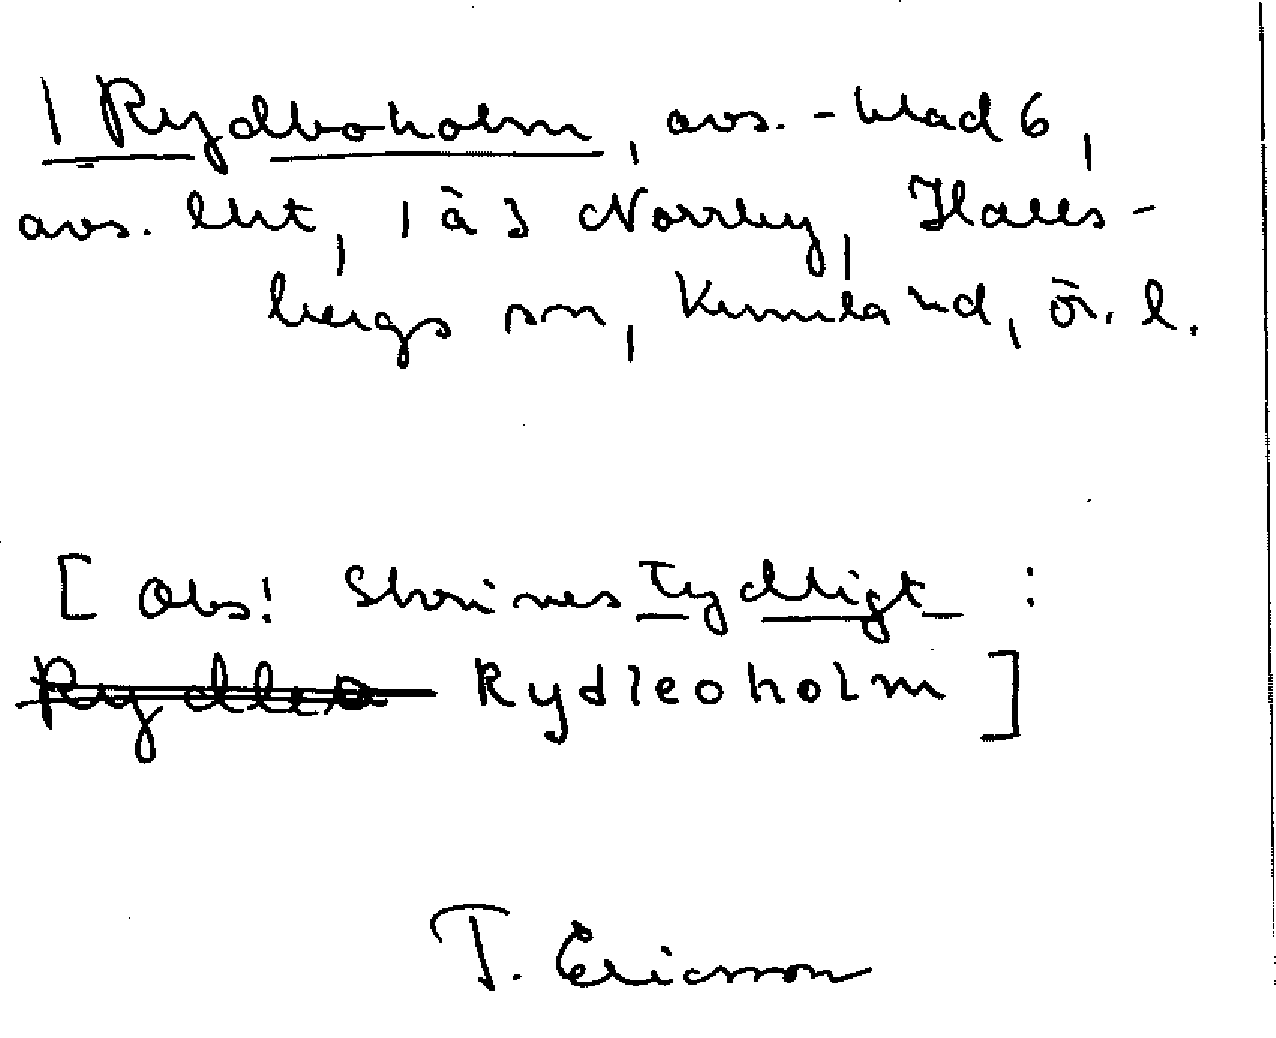 1 Rydboholm, avs. - blad 6,
avs. lht, 1 à 3 Norrby, Halls-
bergs sn, Kumla hd, ör. l.
[ Obs! Skrives tydligt :
Rydleo Rydleoholm ]
T. Ericsson